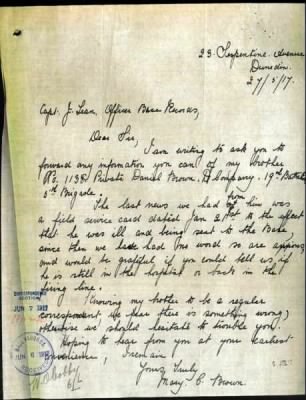 23. Serpentine Avenue
Dunedin.
27/5/17.
Capt. J. Lean, Officer Base Records,
Dear Sir,
I am writing to ask you to
forward any information you can of my brother
1135 Private Daniel Brown. Company. 19th
5th Brigade.
from
The last news we had him was
a field service card dated Jan 21st to the effect
that he was ill and being sent to the Base,
since then we have had one word so are anxious
and would be grateful if you could tell us, if
he is still in the hospital or back in the
firing line.
Knowing my brother to be a regular
correspondent we fear there is something wrong;
otherwise we should hesitate to trouble you.
Hoping to hear from you at your earliest
convenience, I remain
Yours truly
Mary C. Brown.
JUN 1917
JUN 6 1917